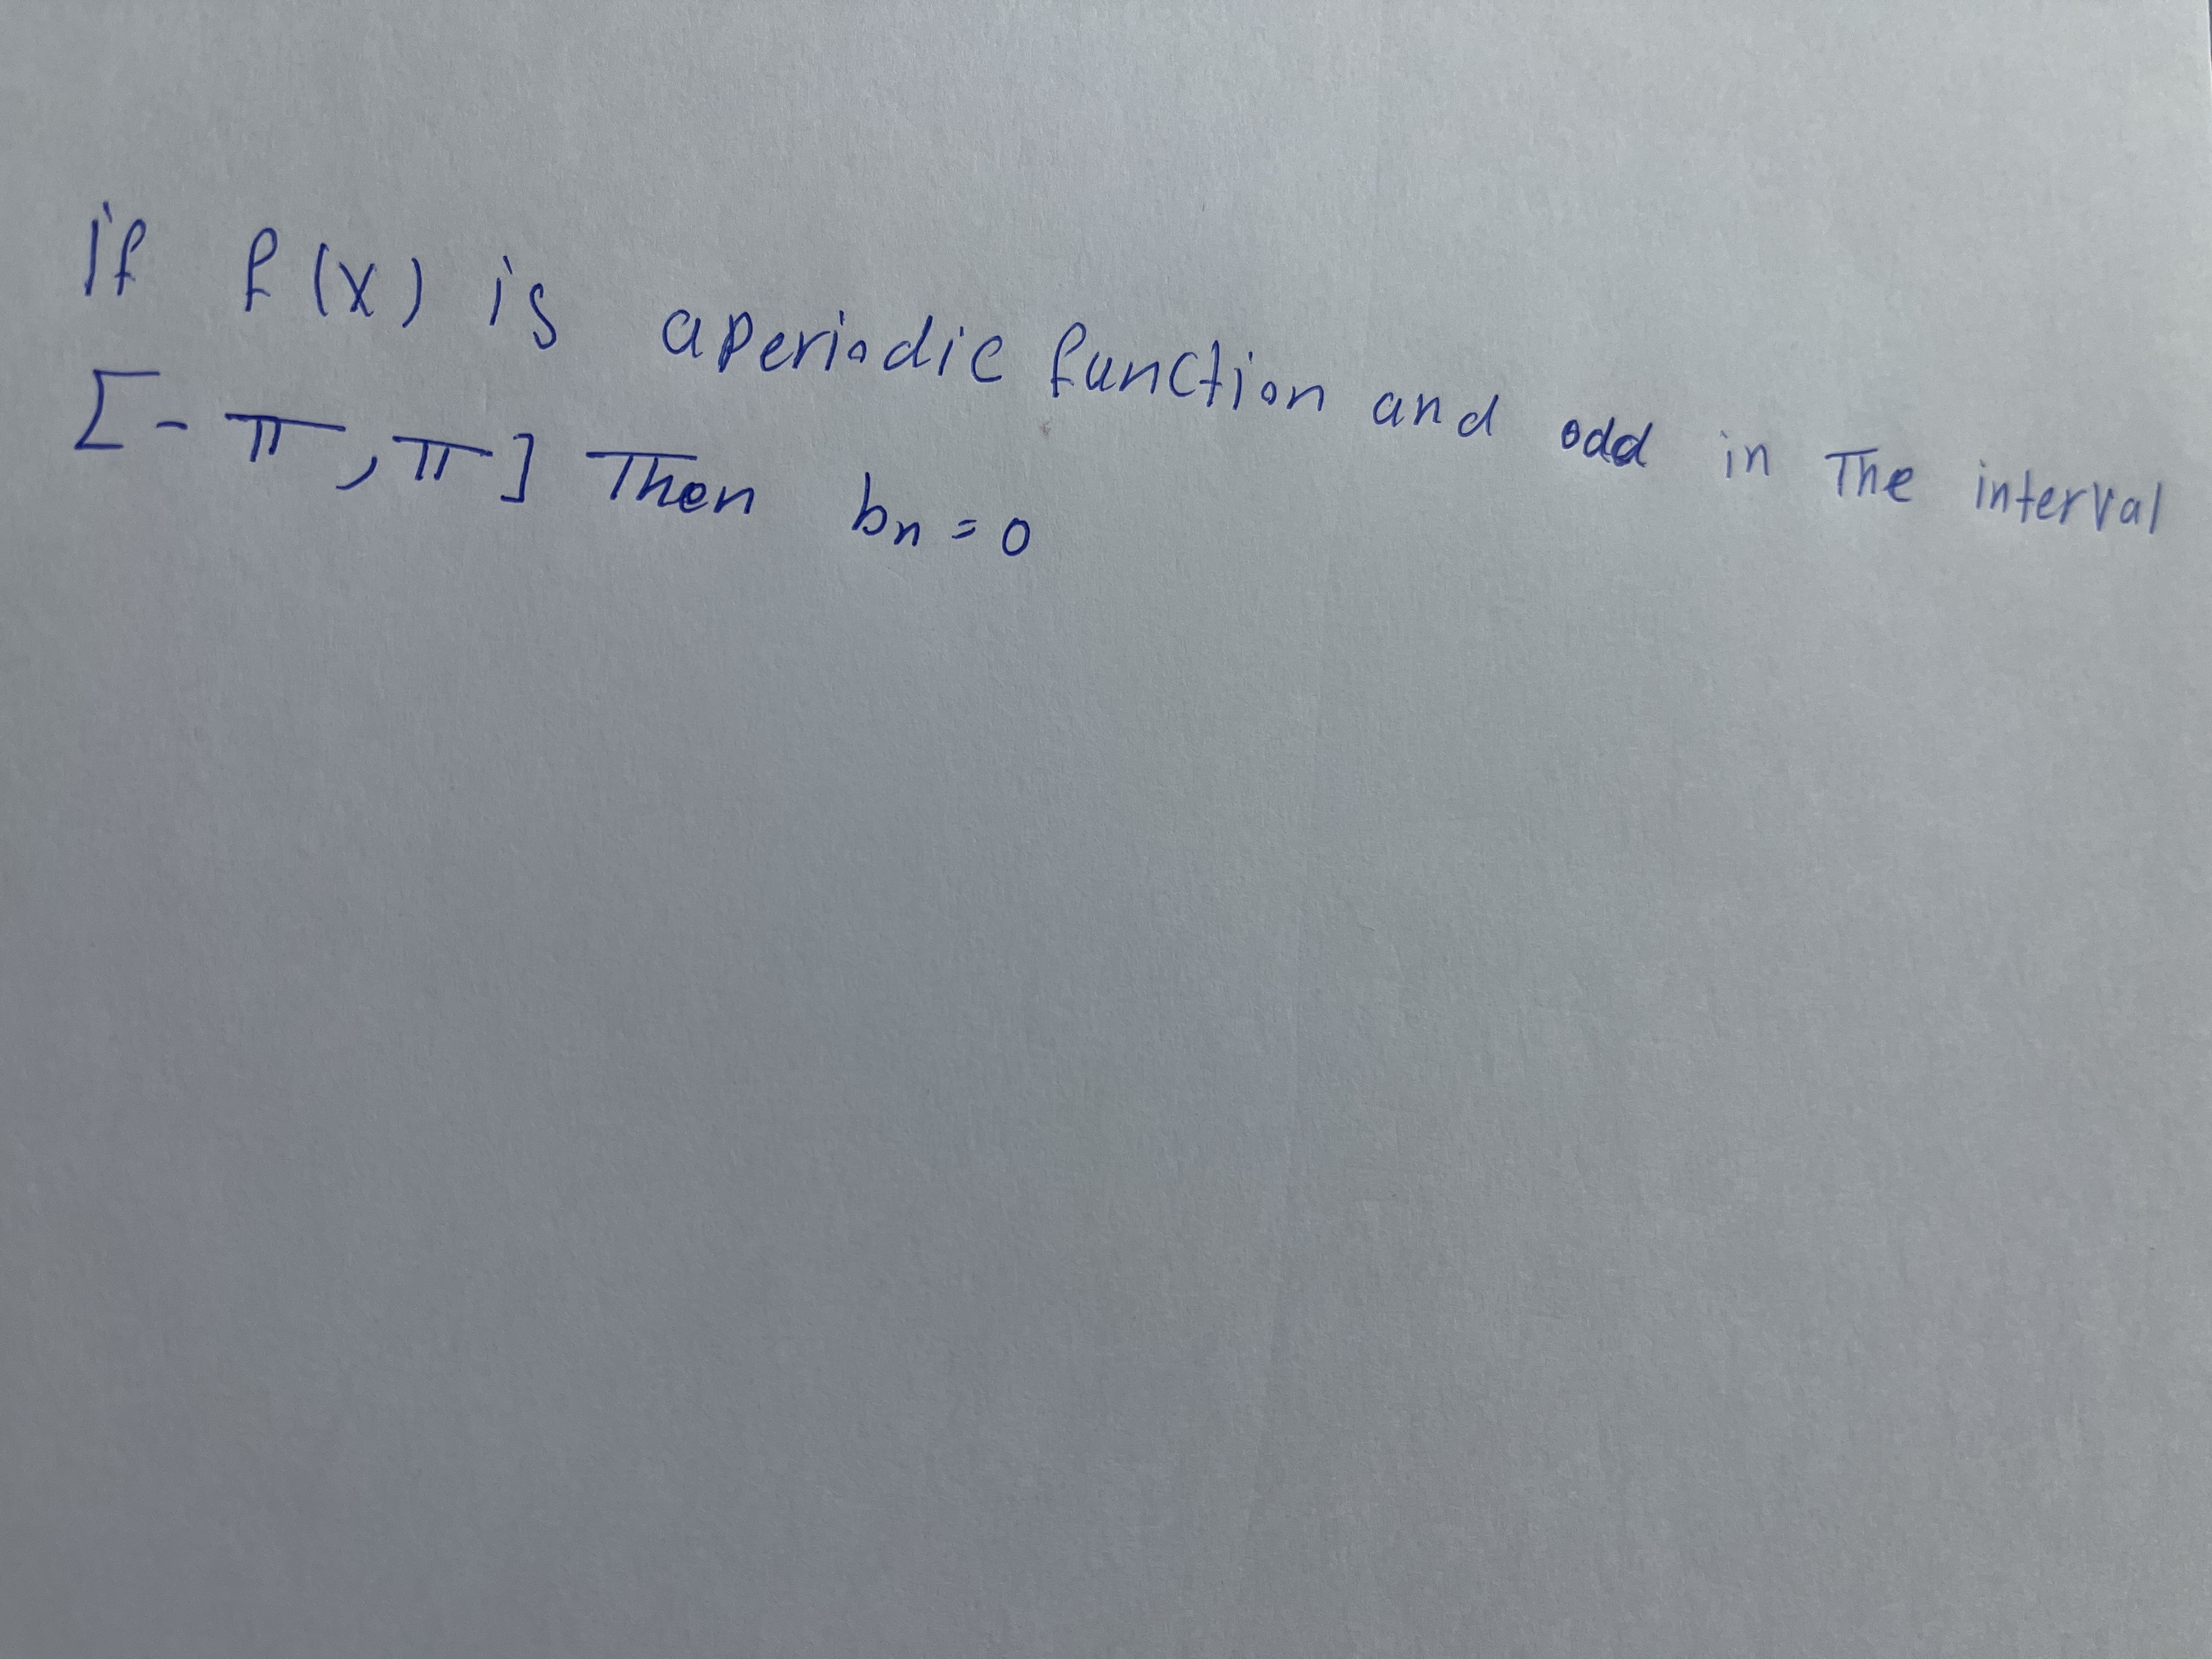 If f(x) is a periodic function and odd in The interval
[-π,π] Then bn=0